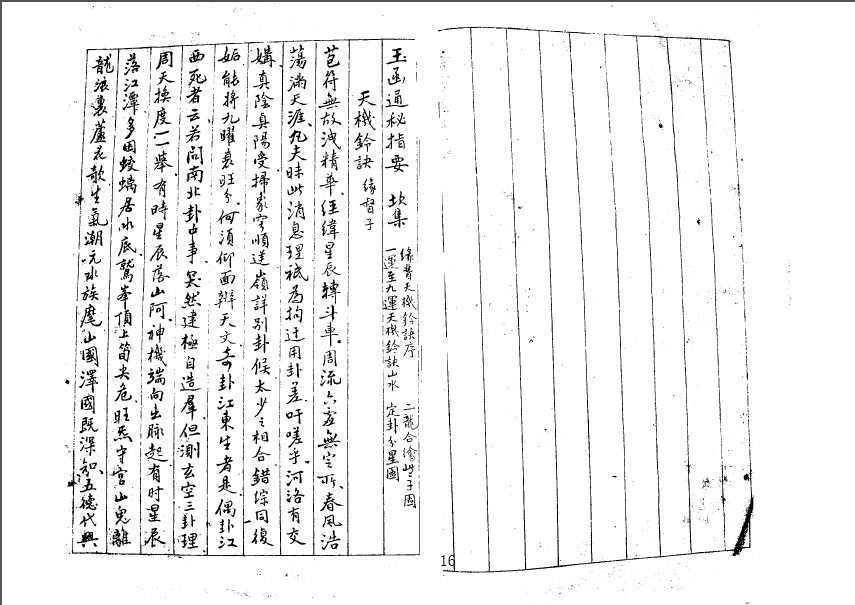 玉函通秘指要 坎集
緣督天機鈐訣序
一運至九運天機鈐訣山水 定卦分星圖
天機鈐訣 緣督子
苞符無故洩精華經緯星辰轉斗車周流六虛無定所春風浩
蕩滿天涯凡夫昧此消息理祇為拘迂用卦差吁嗟乎河洛有交
媾真陰真陽受掃家穹順逆嶺詳別卦候太少之相合錯綜同復
姤能將九曜衰旺分何須仰面辨天文奇卦江東生者是偶卦江
西死者云若問南北卦中事突然建極自造羣但測玄空三卦理
周天換度一一舉有時星辰落山阿神機端向出脉起有时星辰
落江潭多因蛟螭居水底鷲峯頂上筍尖危旺炁守宮山鬼離
龍浪裏蘆花歌生氣潮元水族麾山國澤國既深知五德代興
16